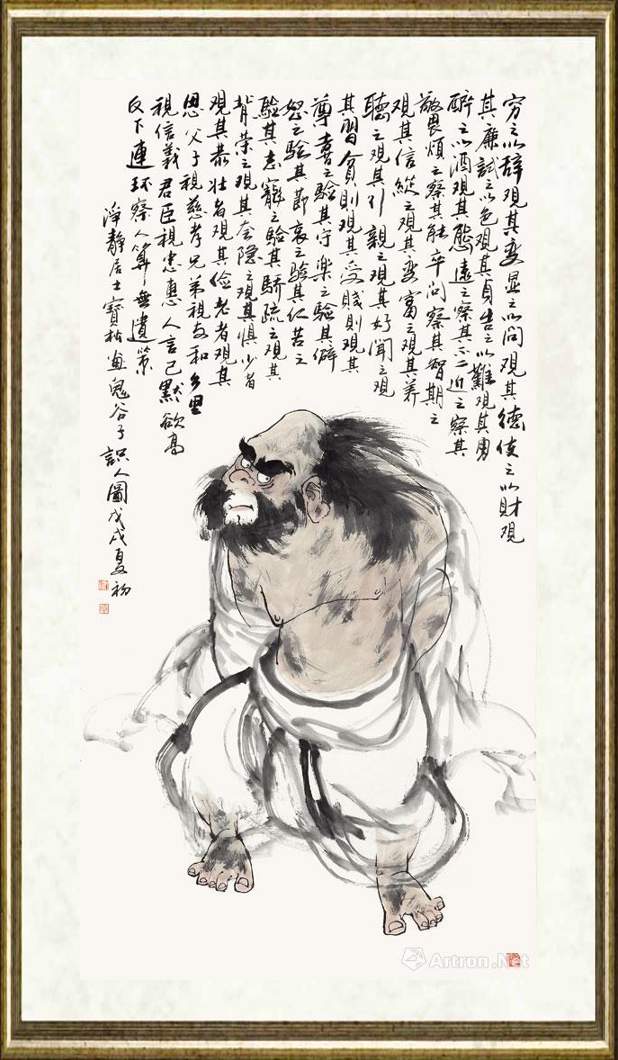 穷之以辞观其变显之以问观其德使之以财观
其廉試之以色观其貞告之以難观其勇
醉之以酒观其態遠之察其不二近之察其
敬畏煩之察其能卒问察其智期之
观其信縱之观其变富之观其养
聽之观其引親之观其好闻之观
其習貧則观其受賤則观其
尊喜之驗其守樂之驗其僻
怒之驗其節哀之驗其仁苦之
驗其志寵之驗其驕疏之观其
背荣之观其 隐之观其惧少者
观其恭壮者观其俭老者观其
恩父子視慈孝兄弟視友和乡里
視信義君臣視忠惠人言己默欲高
反下連环察人算無遺策
淨静居士寶 画鬼谷子識人圖戊戌夏初
Artron.Net